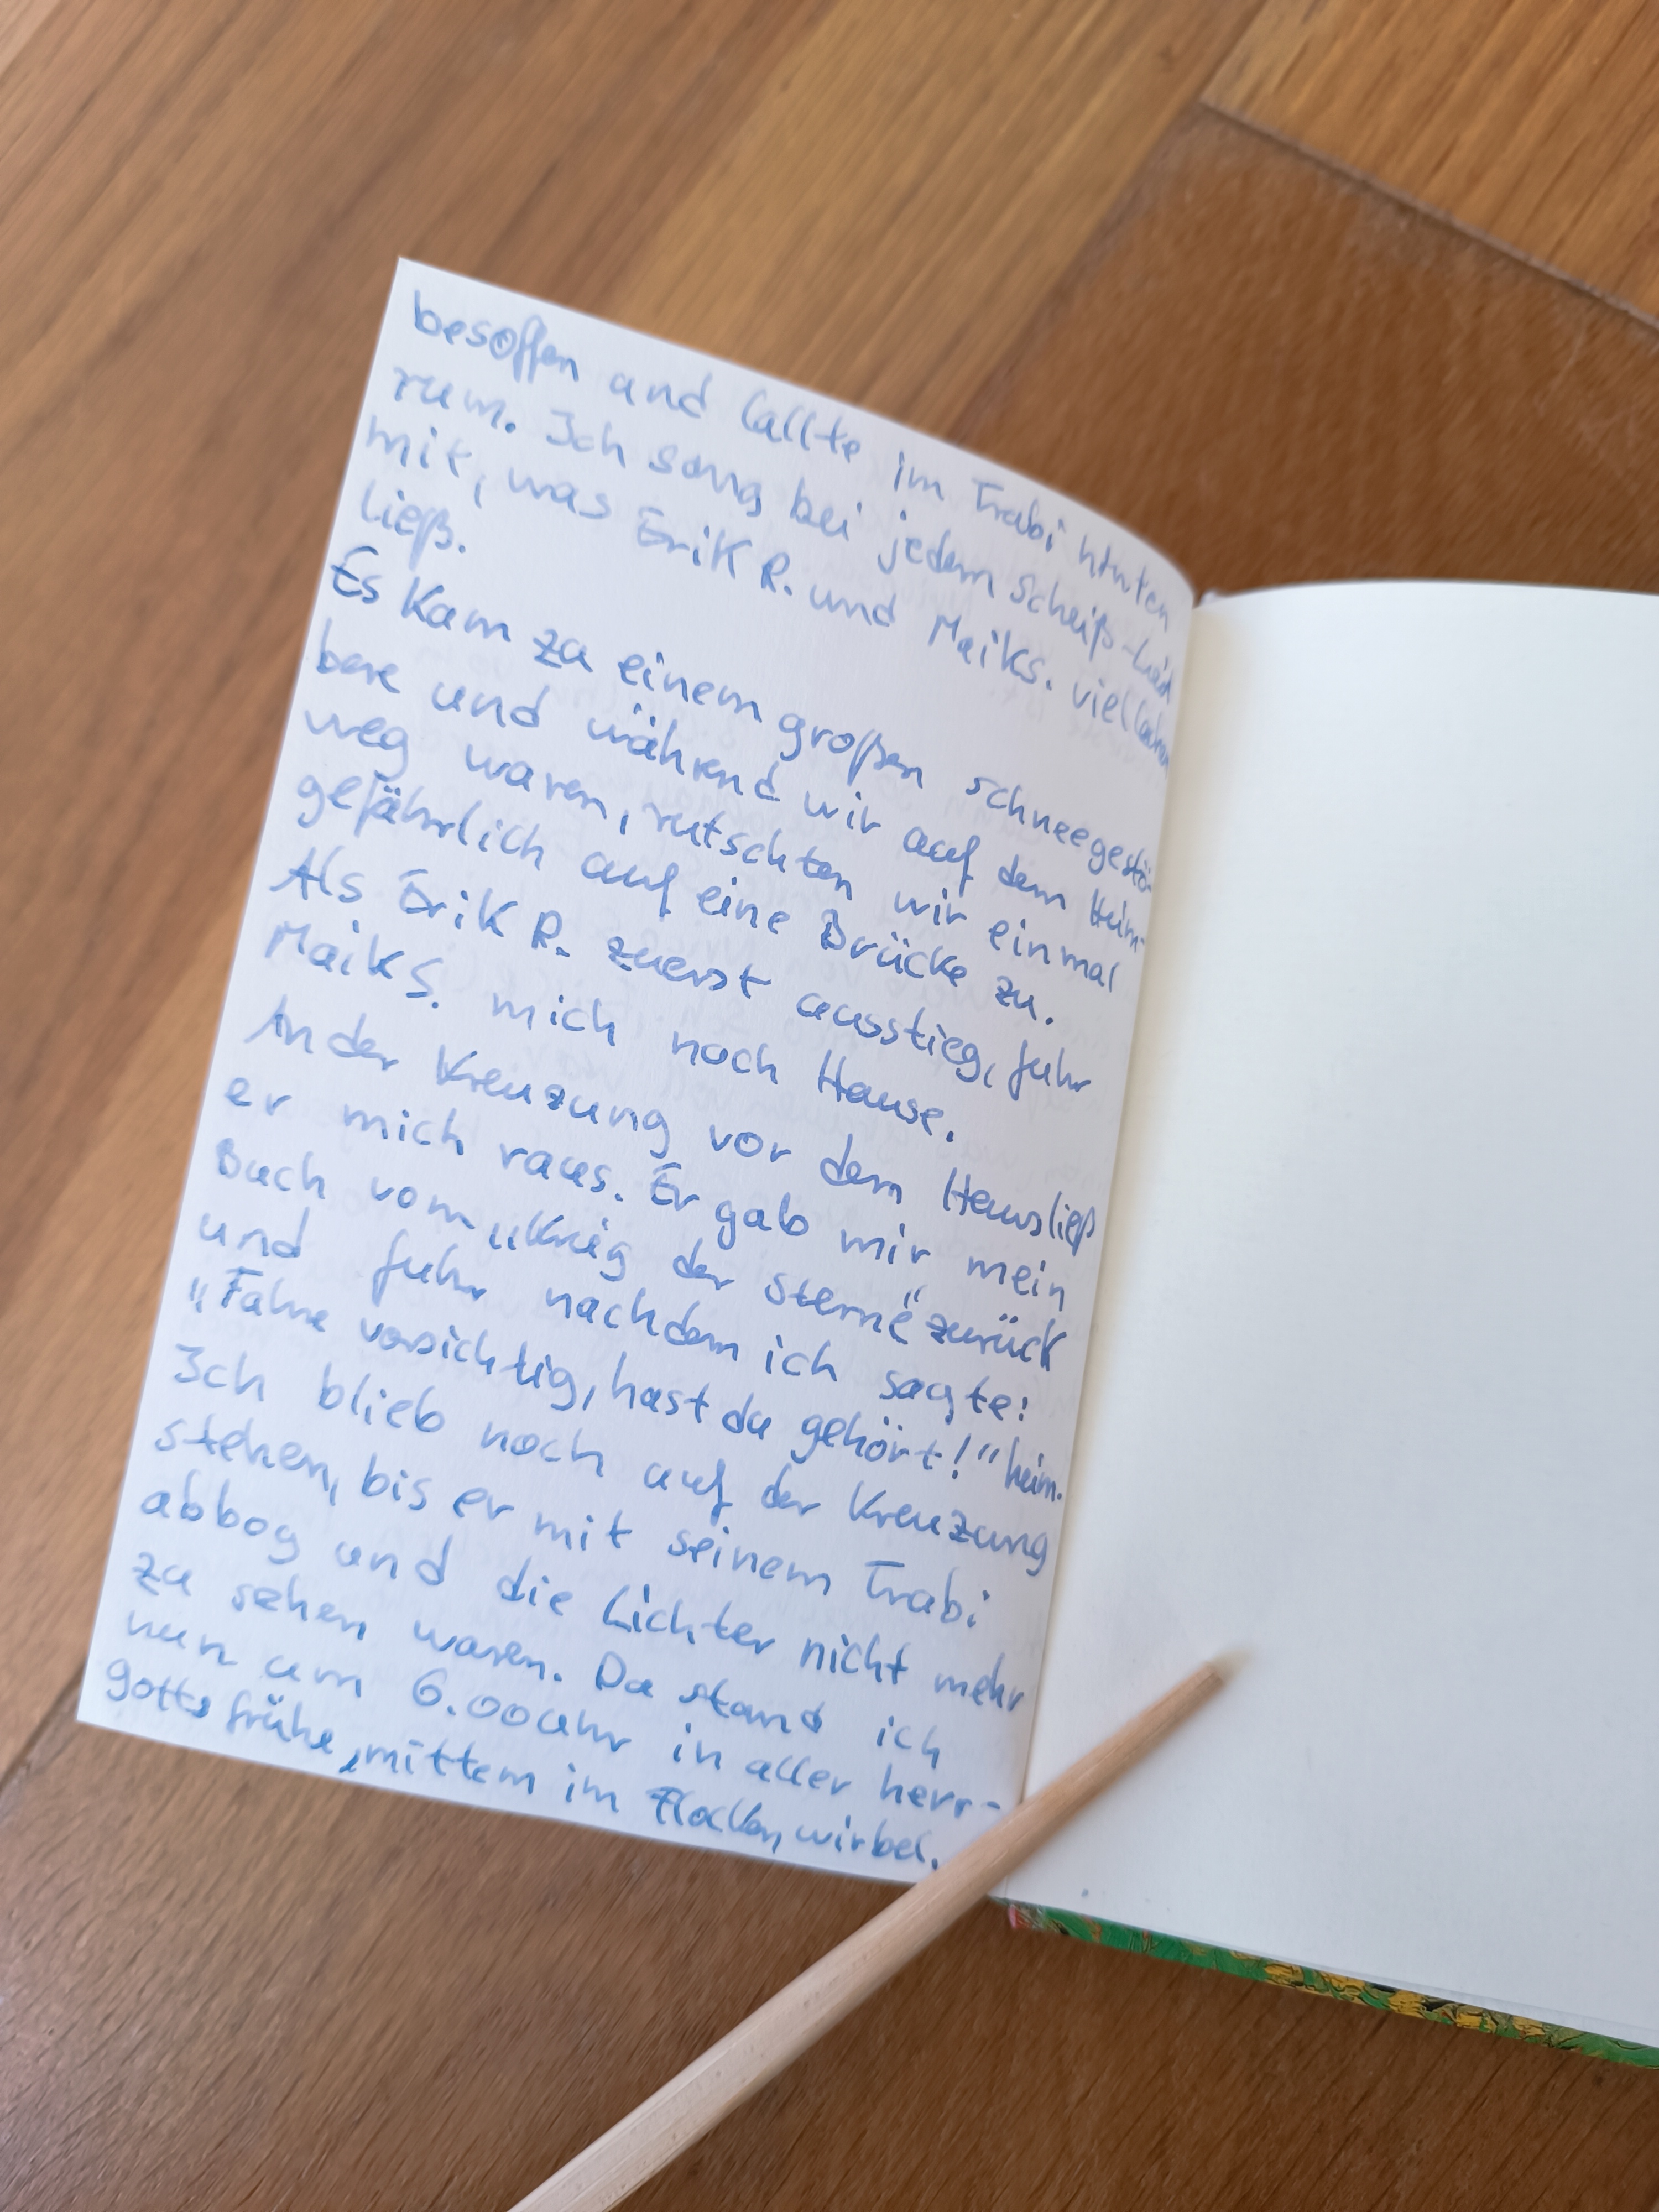 besoffen und lallte im Trabi hinten
rum. Ich sang bei jedem Scheiß-Lied
mit, was Erik R. und Maik S.
ließ.
Es kam zu einem großen Schneegestö-
ber und während wir auf dem Heim-
weg waren, rutschten wir einmal
gefährlich auf eine Brücke zu.
Als Erik R. zuerst ausstieg, fuhr
Maik S. mich nach Hause.
An der Kreuzung vor dem Haus ließ
er mich raus. Er gab mir mein
Buch vom „Krieg der Sterne“ zurück
und fuhr nachdem ich sagte:
„Fahre vorsichtig, hast du gehört!“ heim.
Ich blieb noch auf der Kreuzung
stehen, bis er mit seinem Trabi
abbog und die Lichter nicht mehr
zu sehen waren. Da stand ich
nun um 6.00 Uhr in aller herr-
gottsfrühe, mitten im Flockenwirbel.